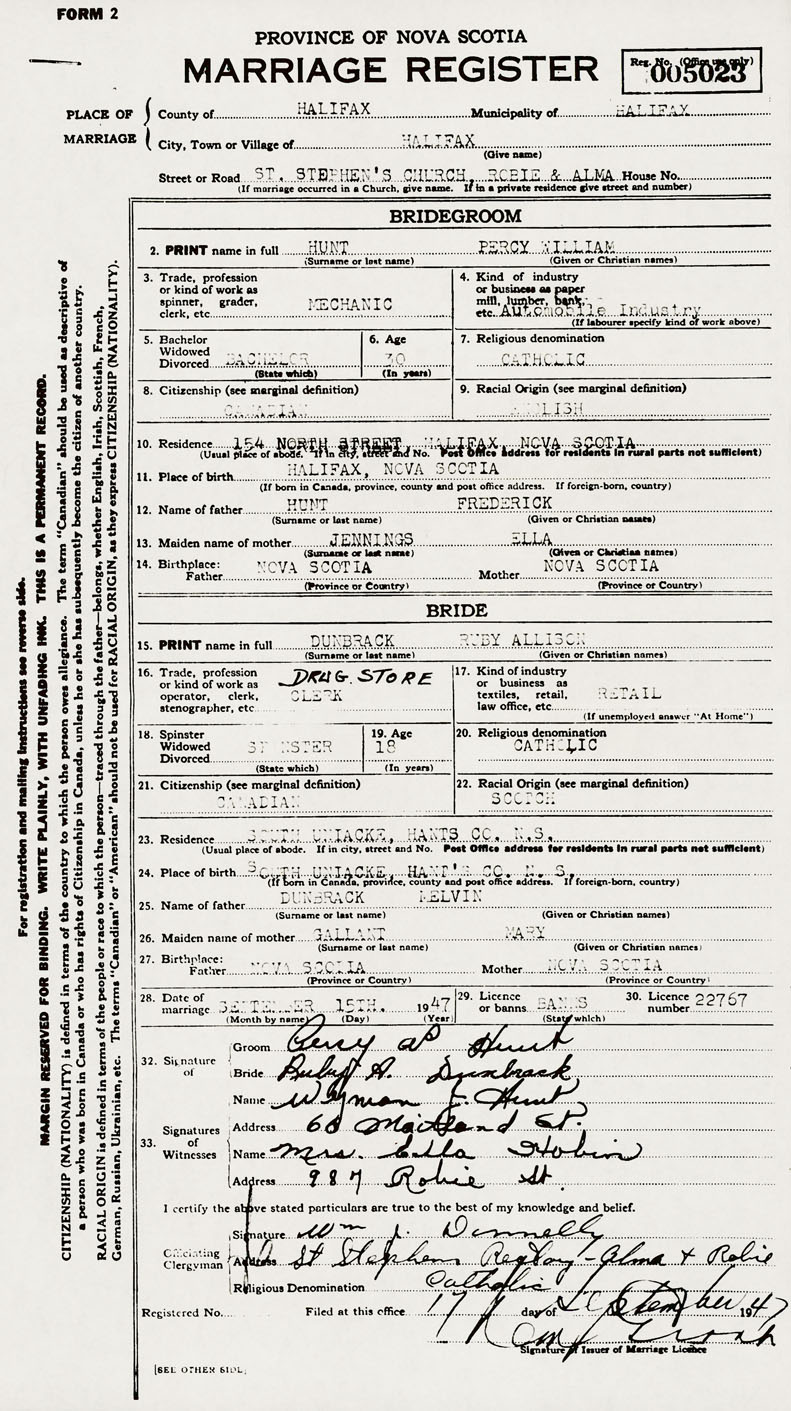 FORM 2
PROVINCE OF NOVA SCOTIA
MARRIAGE REGISTER
Reg. No. (Office use only)
005023
PLACE OF MARRIAGE
County of HALIFAX Municipality of HALIFAX
City, Town or Village of HALIFAX
(Give name)
Street or Road ST. STEPHEN'S CHURCH, ROBIE & ALMA House No.
(If marriage occurred in a Church, give name. If in a private residence give street and number)
BRIDEGROOM
2. PRINT name in full HUNT PERCY WILLIAM
(Surname or last name) (Given or Christian names)
3. Trade, profession or kind of work as spinner, grader, clerk, etc. MECHANIC
4. Kind of industry or business as paper mill, lumber, bank, etc. Automobile Industry
(If labourer specify kind of work above)
5. Bachelor Widowed Divorced BACHELOR
(State which)
6. Age 30
(In years)
7. Religious denomination
CATHOLIC
8. Citizenship (see marginal definition)
CANADIAN
9. Racial Origin (see marginal definition)
ENGLISH
10. Residence 154 NORTH STREET, HALIFAX, NOVA SCOTIA
(Usual place of abode. If in city, street and No. Post Office address for residents in rural parts not sufficient)
11. Place of birth HALIFAX, NOVA SCOTIA
(If born in Canada, province, county and post office address. If foreign-born, country)
12. Name of father HUNT FREDERICK
(Surname or last name) (Given or Christian names)
13. Maiden name of mother JENNINGS ELLA
(Surname or last name) (Given or Christian names)
14. Birthplace: Father NOVA SCOTIA Mother NOVA SCOTIA
(Province or Country) (Province or Country)
BRIDE
15. PRINT name in full DUNBRACK RUBY ALLISON
(Surname or last name) (Given or Christian names)
16. Trade, profession or kind of work as operator, clerk, stenographer, etc. DRUG. STORE CLERK
17. Kind of industry or business as textiles, retail, law office, etc. RETAIL
(If unemployed answer "At Home")
18. Spinster Widowed Divorced SPINSTER
(State which)
19. Age 18
(In years)
20. Religious denomination
CATHOLIC
21. Citizenship (see marginal definition)
CANADIAN
22. Racial Origin (see marginal definition)
SCOTCH
23. Residence SOUTH UNIACKE, HANTS CO. N.S.
(Usual place of abode. If in city, street and No. Post Office address for residents in rural parts not sufficient)
24. Place of birth SOUTH UNIACKE, HANT'S CO. N. S.
(If born in Canada, province, county and post office address. If foreign-born, country)
25. Name of father DUNBRACK MELVIN
(Surname or last name) (Given or Christian names)
26. Maiden name of mother GALLANT MARY
(Surname or last name) (Given or Christian names)
27. Birthplace: Father NOVA SCOTIA Mother NOVA SCOTIA
(Province or Country) (Province or Country)
28. Date of marriage SEPTEMBER 15TH. 1947
(Month by name) (Day) (Year)
29. Licence or banns BANNS
(State which)
30. Licence number 22767
32. Signature of
Groom Percy W Hunt
Bride Ruby A. Dunbrack
33. Signatures of Witnesses
Name Wyman J. Hunt
Address 60 Maitland St.
Name Mrs. Ella Hobin
Address 987 Robie St
I certify the above stated particulars are true to the best of my knowledge and belief.
Officiating Clergyman
Signature Wm J. Donnelly
Address St Stephens Rectory - Alma + Robie
Religious Denomination Catholic
Registered No. Filed at this office 17 day of September 1947
Signature of Issuer of Marriage Licence
[SEE OTHER SIDE]
For registration and mailing instructions see reverse side.
MARGIN RESERVED FOR BINDING. WRITE PLAINLY, WITH UNFADING INK. THIS IS A PERMANENT RECORD.
CITIZENSHIP (NATIONALITY) is defined in terms of the country to which the person owes allegiance. The term "Canadian" should be used as descriptive of
a person who was born in Canada or who has rights of Citizenship in Canada, unless he or she has subsequently become the citizen of another country.
RACIAL ORIGIN is defined in terms of the people or race to which the person—traced through the father—belongs, whether English, Irish, Scottish, French,
German, Russian, Ukrainian, etc. The terms "Canadian" or "American" should not be used for RACIAL ORIGIN, as they express CITIZENSHIP (NATIONALITY).